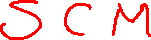 S C M